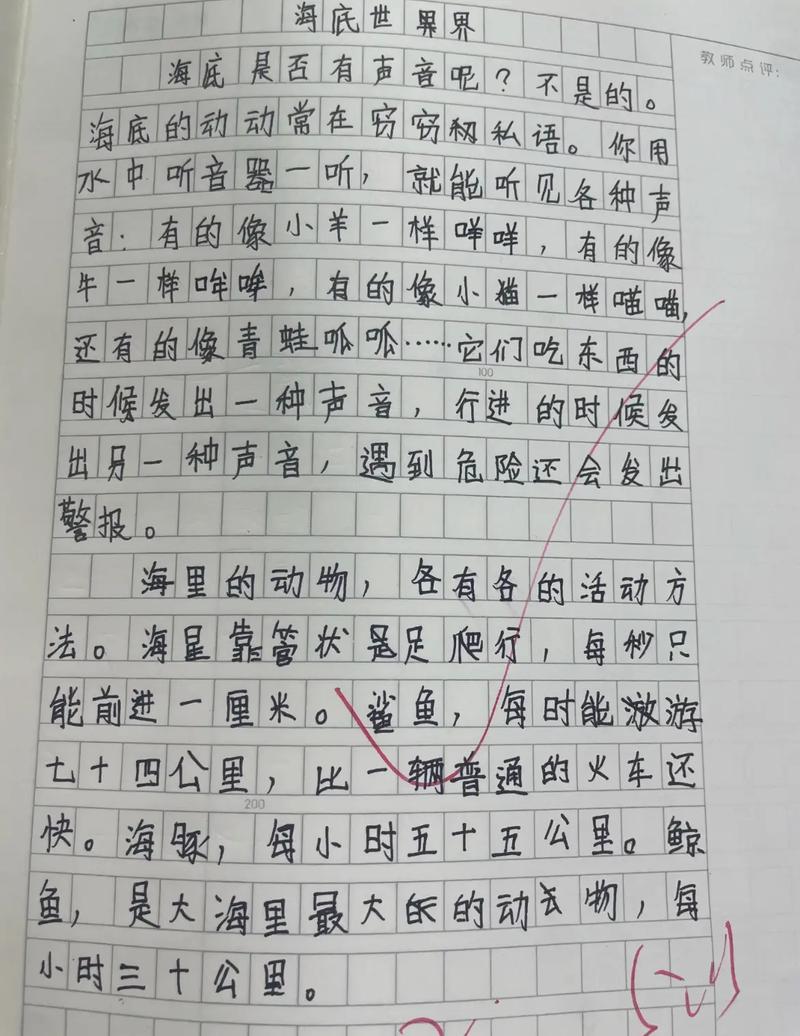 海底世界界
教师点评：
海底是否有声音呢？不是的。
海底的动动常在窃窃私语。你用
水中听音器一听，就能听见各种声
音：有的像小羊一样咩咩，有的像
牛一样哞哞，有的像小猫一样喵喵，
还有的像青蛙呱呱……它们吃东西的
100
时候发出一种声音，行进的时候发
出另一种声音，遇到危险还会发出
警报。
海里的动物，各有各的活动方
法。海星靠管状是足爬行，每秒只
能前进一厘米。鲨鱼，每时能激游
七十四公里，比一辆普通的火车还
200
快。海豚，每小时五十五公里。鲸
鱼，是大海里最大的动物，每
小时三十公里。